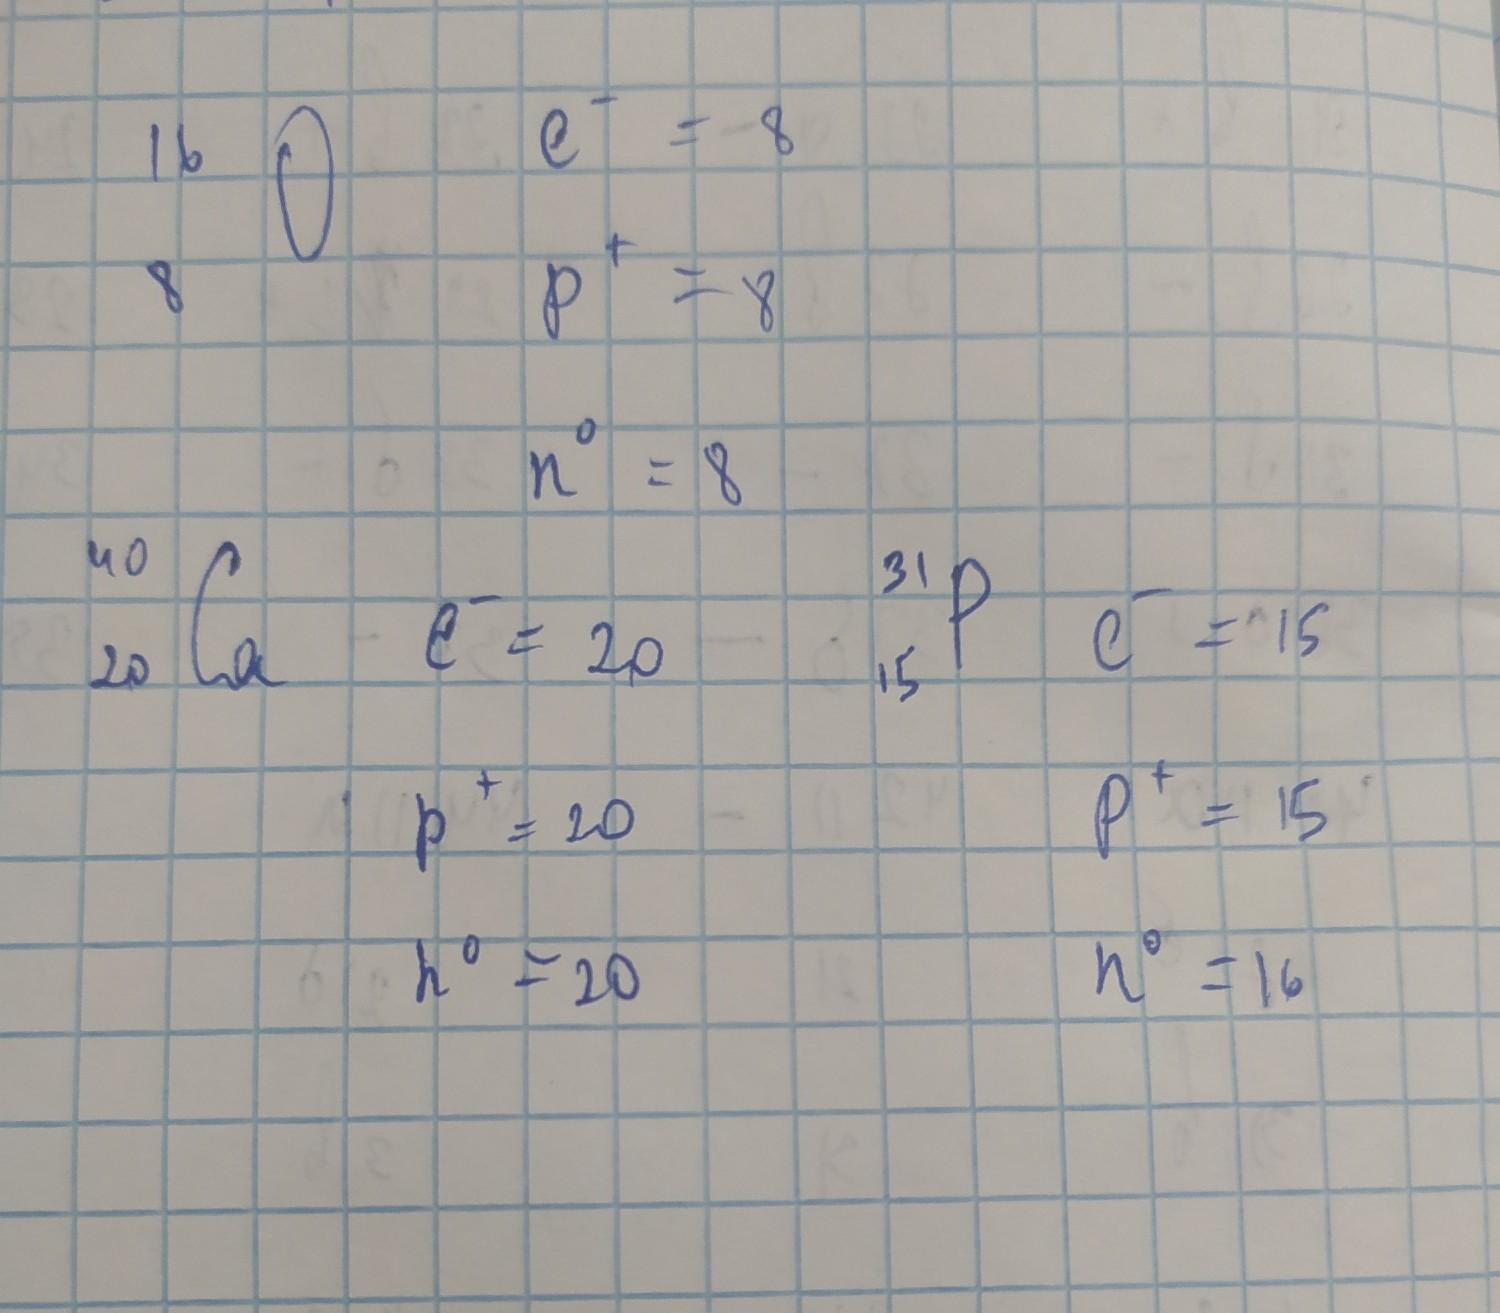 16 O e⁻ = 8
8 p⁺ = 8
n⁰ = 8
40
20 Ca e⁻ = 20
p⁺ = 20
n⁰ = 20
31
15 P e⁻ = 15
p⁺ = 15
n⁰ = 16